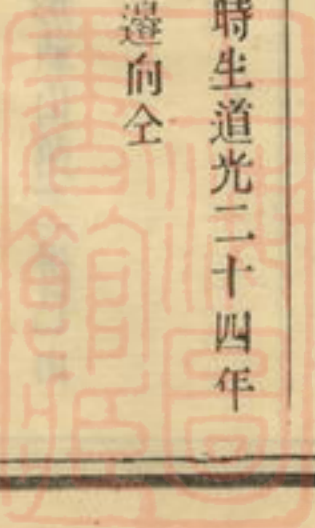 時生道光二十四年
邊向仝